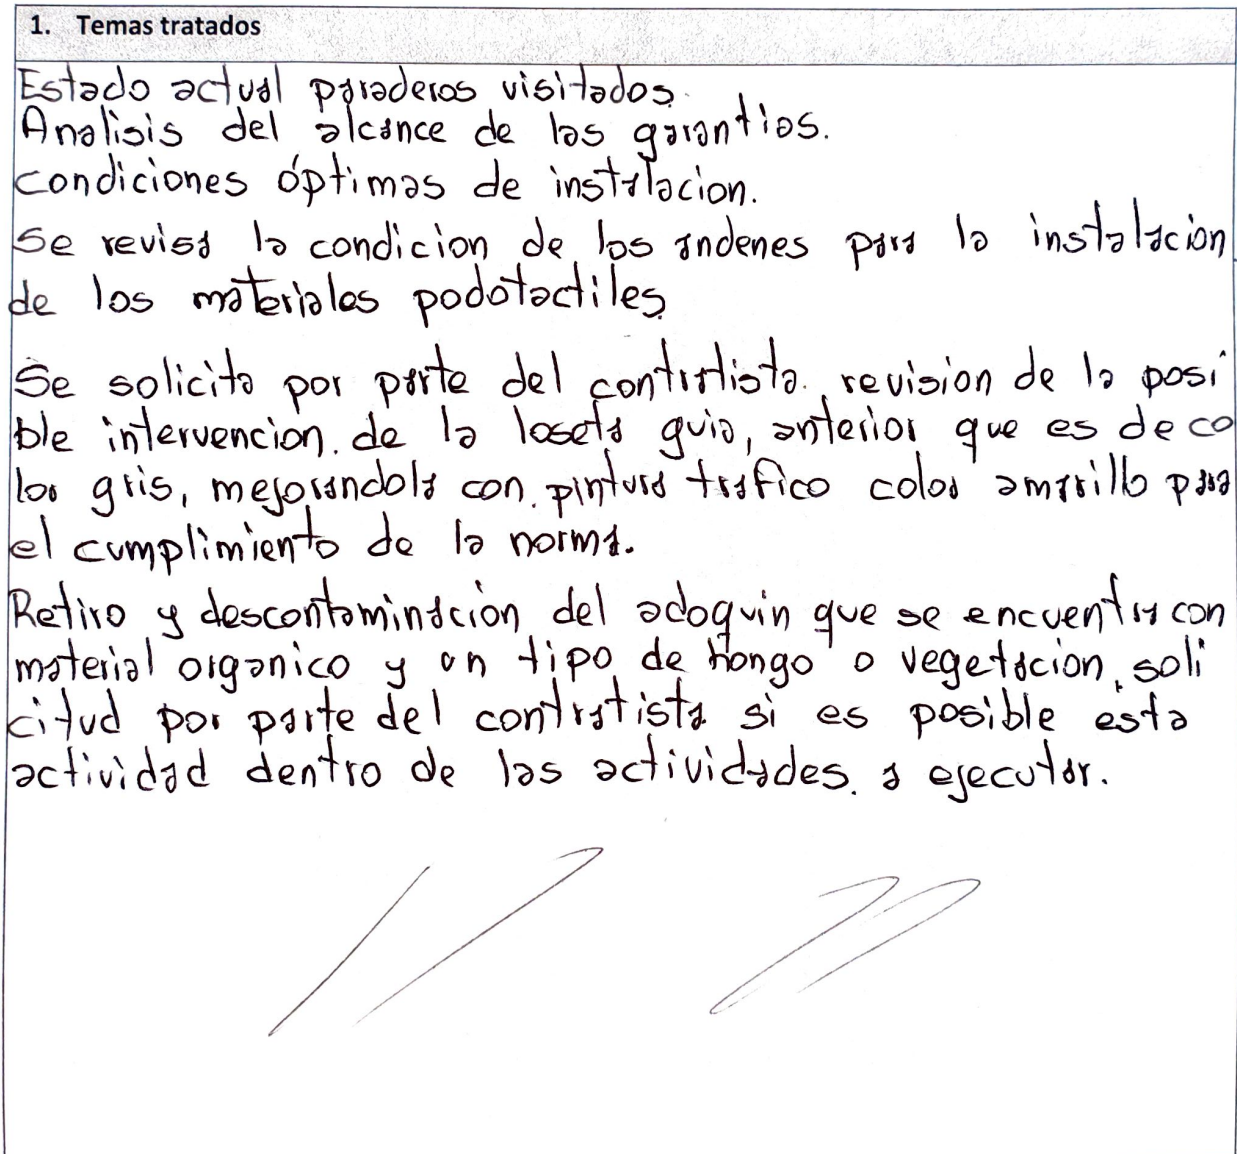 1. Temas tratados
Estado actual paraderos visitados.
Analisis del alcance de las garantias.
Condiciones óptimas de instalacion.
Se revisa la condicion de los andenes para la instalación
de los materiales podotactiles.
Se solicita por parte del contratista, revision de la posi
ble intervencion. de la loseta guia, anterior que es de co
lor gris, mejorandola con pintura trafico color amarillo para
el cumplimiento de la norma.
Retiro y descontaminación del adoquin que se encuentra con
material organico y un tipo de hongo o vegetacion, soli
citud por parte del contratista si es posible esta
actividad dentro de las actividades. a ejecutar.